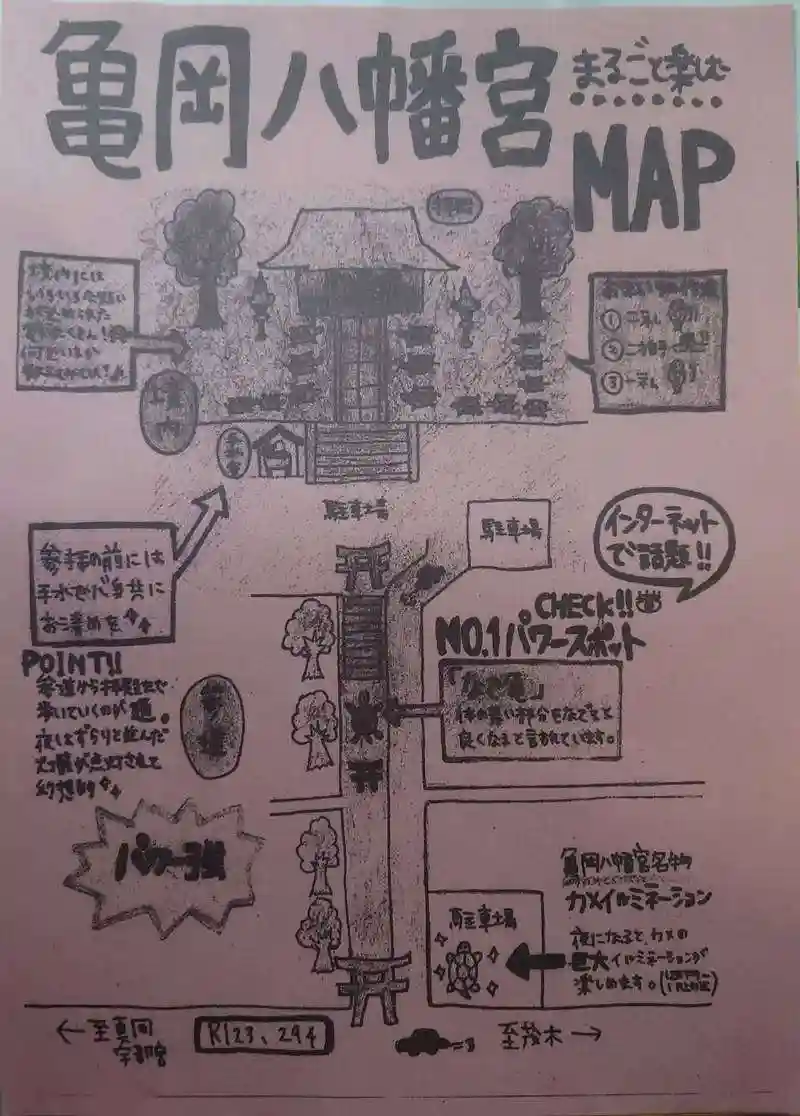 亀岡八幡宮
まるごと楽しむ
MAP
拝殿
境内には
いろいろな
①二礼
②二拍手
③一礼
境内
手水舎
駐車場
駐車場
参拝の前には
手水で心身共に
お清めを
インターネット
で話題!!
CHECK!!
NO.1パワースポット
「なで亀」
体の悪い部分をなでると
良くなると言われています。
POINT!!
参道から拝殿まで
歩いていくのが通。
夜はずらりと並んだ
灯籠が点灯されて
幻想的
参道
パワー強
亀岡八幡宮名物
カメイルミネーション
夜になると、カメの
巨大イルミネーションが
楽しめます。
駐車場
←至真岡
宇都宮
R123、294
至茂木→